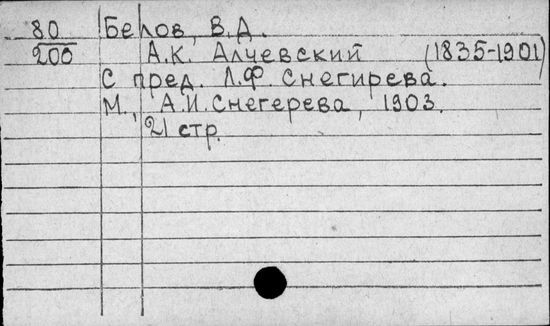 80 Белов, В.Д.
200 А.К. Алчевский (1835-1901)
С пред. Л.Ф. Снегирева.
М., А.И. Снегерева, 1903.
21 стр.